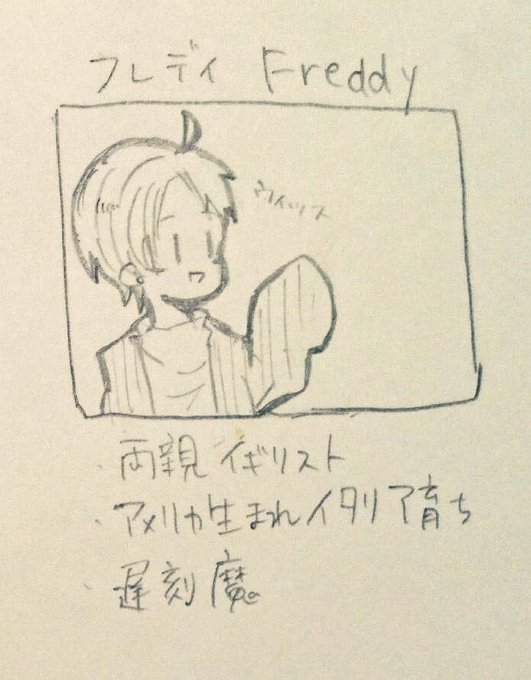 フレディ Freddy
・両親 イギリスト
・アメリカ生まれイタリア育ち
・遅刻魔。